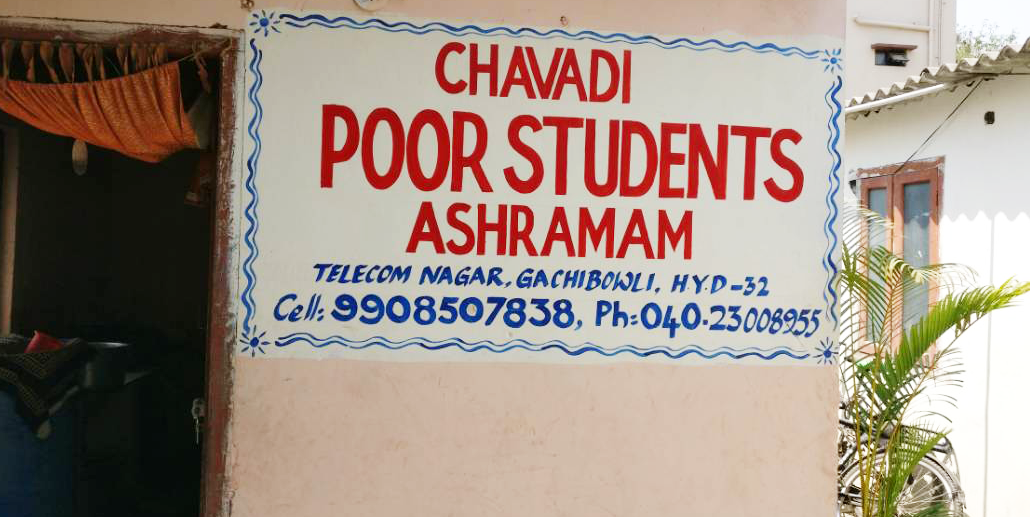 CHAVADI
POOR STUDENTS
ASHRAMAM
TELECOM NAGAR, GACHIBOWLI, H.Y.D-32
Cell: 9908507838, Ph: 040-23008955